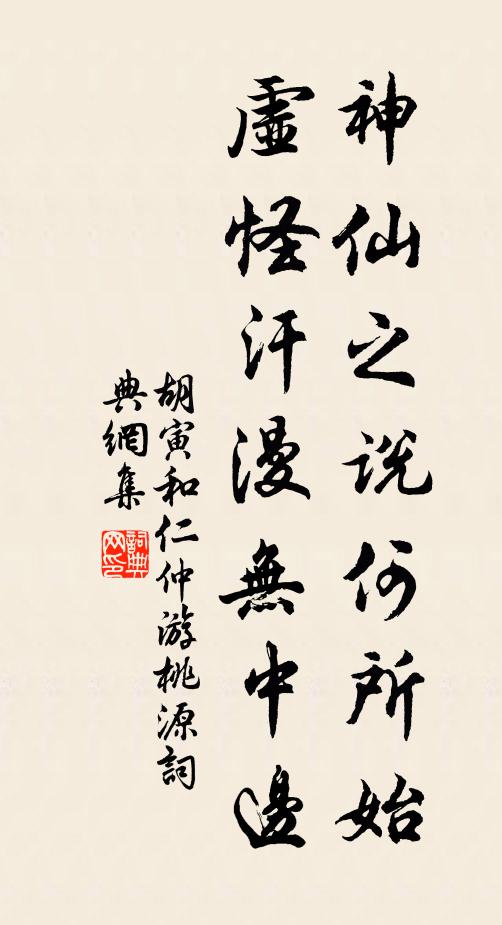 神仙之說何所始
虛怪汗漫無中邊
胡寅和仁仲游桃源詞
典網集
詞典网印